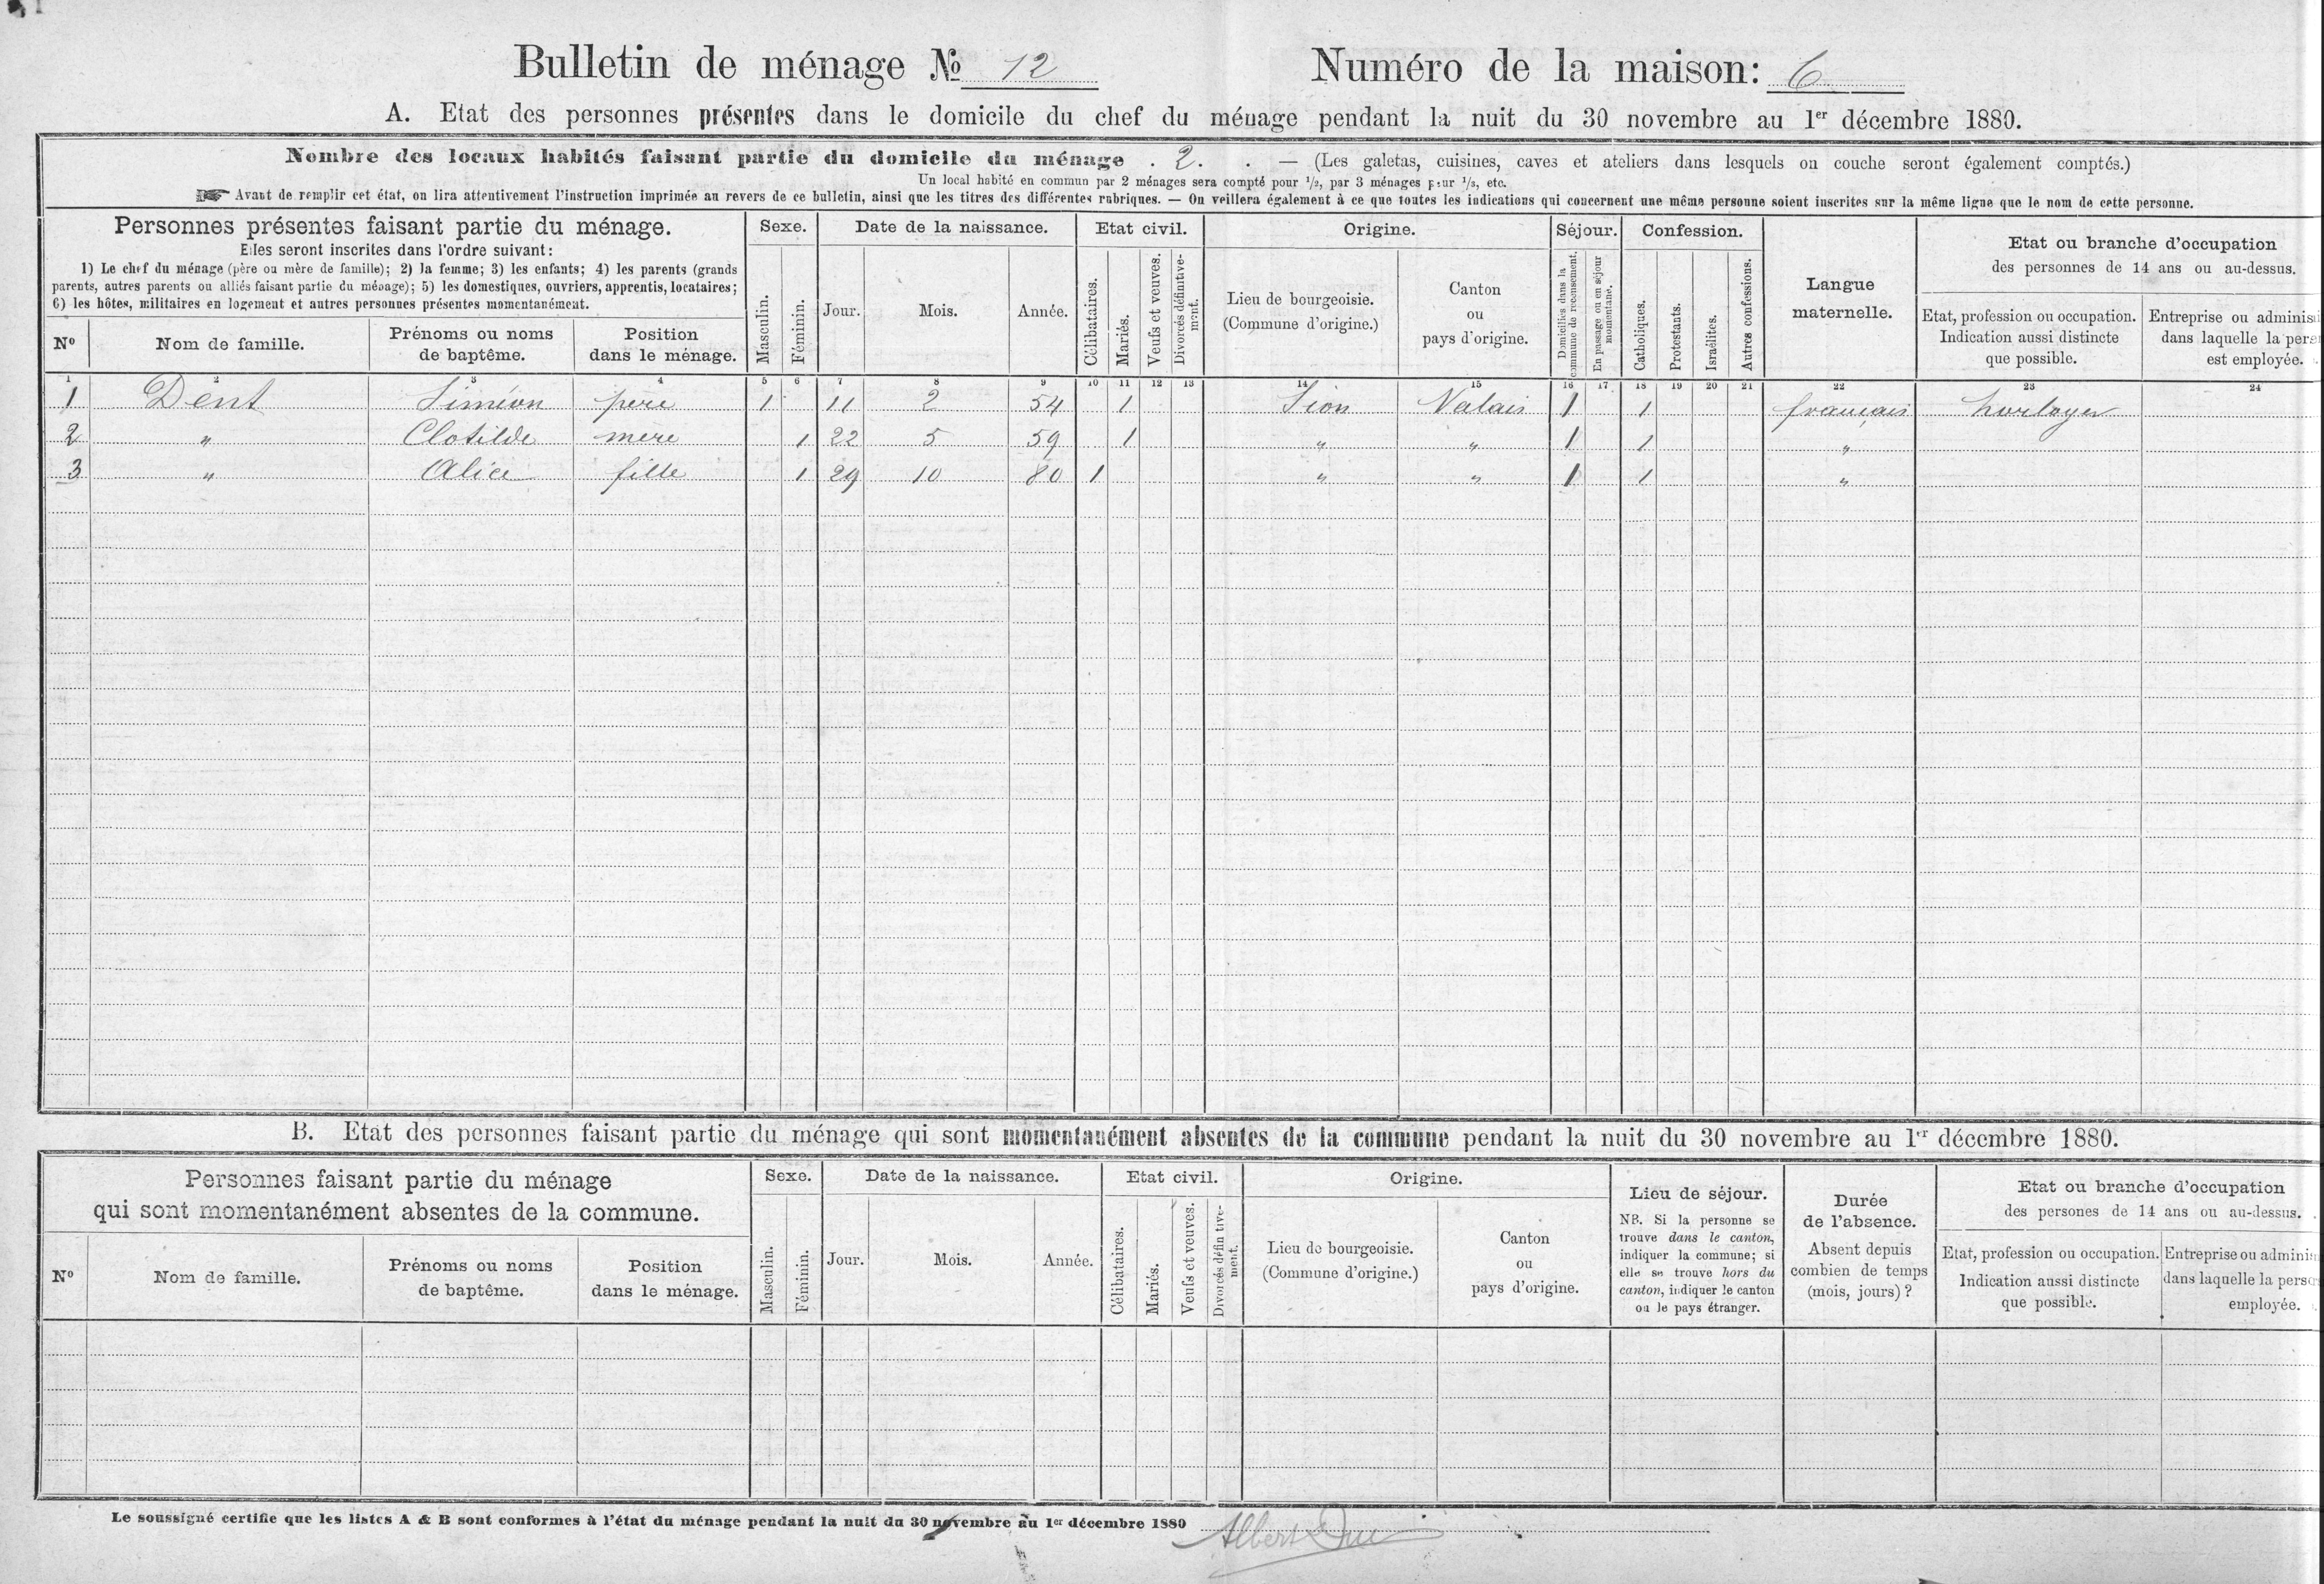 Bulletin de ménage № 12 Numéro de la maison: 6
A. Etat des personnes présentes dans le domicile du chef du ménage pendant la nuit du 30 novembre au 1er décembre 1880.
Nombre des locaux habités faisant partie du domicile du ménage . 2. . — (Les galetas, cuisines, caves et ateliers dans lesquels on couche seront également comptés.)
Un local habité en commun par 2 ménages sera compté pour 1/2, par 3 ménages pour 1/3, etc.
☞ Avant de remplir cet état, on lira attentivement l'instruction imprimée au revers de ce bulletin, ainsi que les titres des différentes rubriques. — On veillera également à ce que toutes les indications qui concernent une même personne soient inscrites sur la même ligne que le nom de cette personne.
Personnes présentes faisant partie du ménage.
Elles seront inscrites dans l'ordre suivant:
1) Le chef du ménage (père ou mère de famille); 2) la femme; 3) les enfants; 4) les parents (grands
parents, autres parents ou alliés faisant partie du ménage); 5) les domestiques, ouvriers, apprentis, locataires;
6) les hôtes, militaires en logement et autres personnes présentes momentanément.
Nº
Nom de famille.
Prénoms ou noms
de baptême.
Position
dans le ménage.
Sexe.
Masculin.
Féminin.
Date de la naissance.
Jour.
Mois.
Année.
Etat civil.
Célibataires.
Mariés.
Veufs et veuves.
Divorcés définitive-
ment.
Origine.
Lieu de bourgeoisie.
(Commune d'origine.)
Canton
ou
pays d'origine.
Séjour.
Domiciliés dans la
commune de recensement.
En passage ou en séjour
momentané.
Confession.
Catholiques.
Protestants.
Israélites.
Autres confessions.
Langue
maternelle.
Etat ou branche d'occupation
des personnes de 14 ans ou au-dessus.
Etat, profession ou occupation.
Indication aussi distincte
que possible.
Entreprise ou adminis
dans laquelle la pers
est employée.
1 2 3 4 5 6 7 8 9 10 11 12 13 14 15 16 17 18 19 20 21 22 23 24
1 Dént Siméon père 1 11 2 54 1 Sion Valais 1 1 français horloger
2 " Clotilde mère 1 22 5 59 1 " " 1 1 "
3 " Alice fille 1 29 10 80 1 " " 1 1 "
B. Etat des personnes faisant partie du ménage qui sont momentanément absentes de la commune pendant la nuit du 30 novembre au 1er décembre 1880.
Personnes faisant partie du ménage
qui sont momentanément absentes de la commune.
Nº
Nom de famille.
Prénoms ou noms
de baptême.
Position
dans le ménage.
Sexe.
Masculin.
Féminin.
Date de la naissance.
Jour.
Mois.
Année.
Etat civil.
Célibataires.
Mariés.
Veufs et veuves.
Divorcés définitive-
ment.
Origine.
Lieu de bourgeoisie.
(Commune d'origine.)
Canton
ou
pays d'origine.
Lieu de séjour.
NB. Si la personne se
trouve dans le canton,
indiquer la commune; si
elle se trouve hors du
canton, indiquer le canton
ou le pays étranger.
Durée
de l'absence.
Absent depuis
combien de temps
(mois, jours) ?
Etat ou branche d'occupation
des persones de 14 ans ou au-dessus.
Etat, profession ou occupation.
Indication aussi distincte
que possible.
Entreprise ou adminis
dans laquelle la perso
employée.
Le soussigné certifie que les listes A & B sont conformes à l'état du ménage pendant la nuit du 30 novembre au 1er décembre 1880 Albert Duc